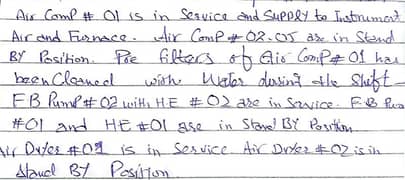 Air Comp # 01 is in Service and SUPPLY to Instrument
Air and Furnace. Air Comp # 02. are in Stand
BY Position. Pre filters of Air Comp # 01 has
been Cleaned with Water during the Shift
F B Pump # 02 with HE # 02 are in Service. F B Pum
#01 and HE #01 are in Stand BY Position
Air Dryer #01 is in Service Air Dryer #02 is in
Stand BY Position